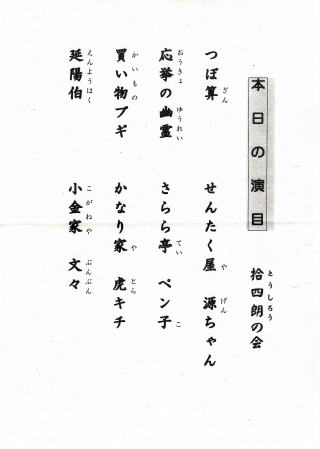 本日の演目
拾四朗の会
とうしろう
つぼ算 せんたく屋 源ちゃん
ざん や げん
応挙の幽霊 さらら亭 ペン子
おうきょ ゆうれい てい こ
買い物ブギ かなり家 虎キチ
かいもの や とら
延陽伯 小金家 文々
えんようはく こがねや ぶんぶん